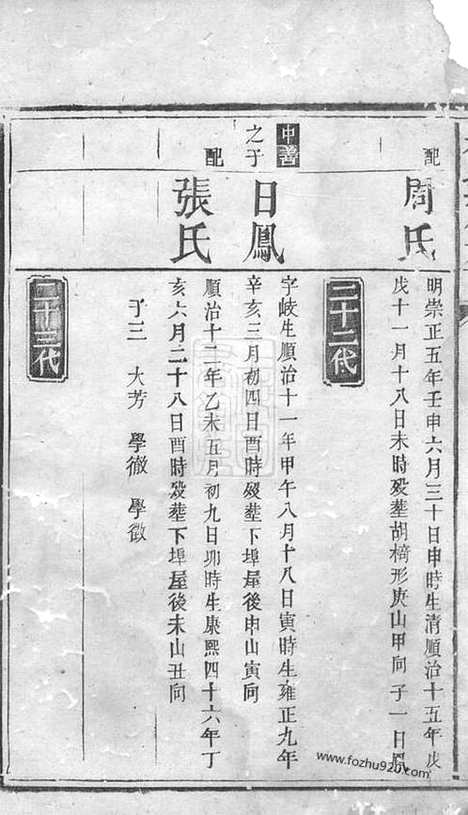 配
周氏
明崇正五年壬申六月三十日申時生清順治十五年戊
戊十一月十八日未時歿塟胡椅形庚山甲向子一日鳳
二十二代
中善
之子
日鳳
字岐生順治十一年甲午八月十八日寅時生雍正九年
辛亥三月初四日酉時歿塟下埠屋後申山寅向
配
張氏
順治十二年乙未五月初九日卯時生康熙四十六年丁
亥六月二十八日酉時歿塟下埠屋後未山丑向
子三 大芳 學徹 學徵
二十三代
www.fozhu920.com